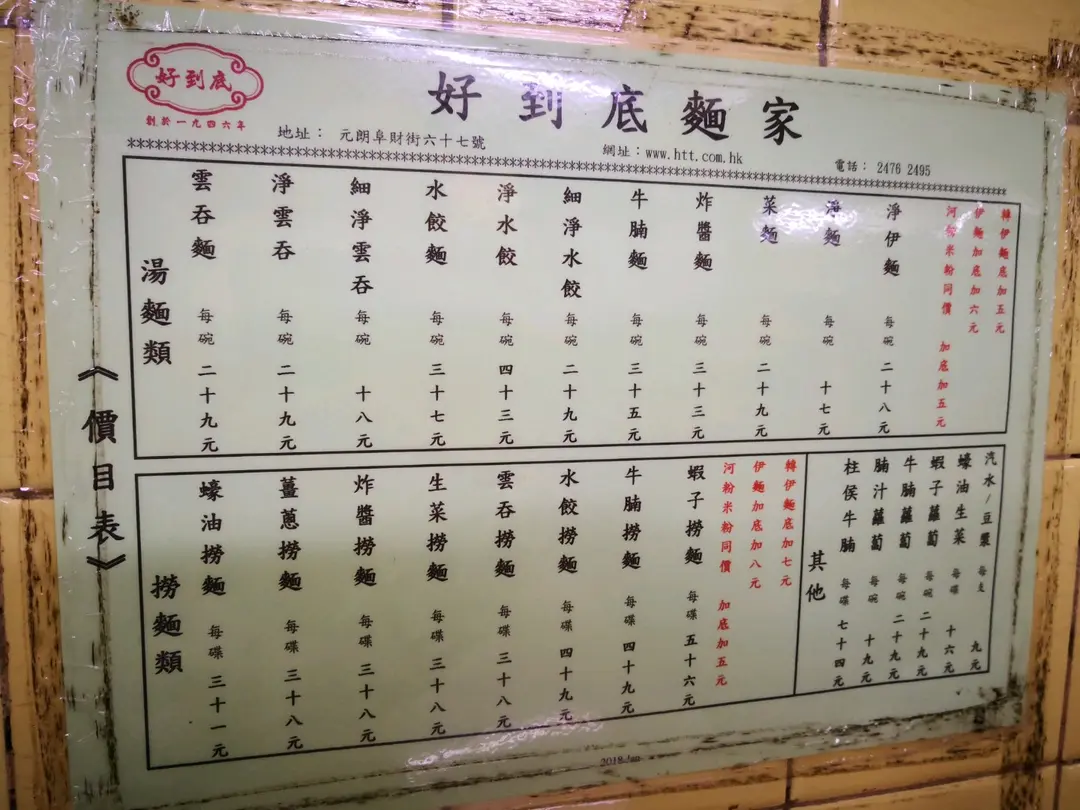 好到底
創於一九四六年
好到底麵家
地址： 元朗阜財街六十七號
網址：www.htt.com.hk
電話： 2476 2495
《價目表》
湯麵類
雲吞麵 每碗 二十九元
淨雲吞 每碗 二十九元
細淨雲吞 每碗 十八元
水餃麵 每碗 三十七元
淨水餃 每碗 四十三元
細淨水餃 每碗 二十九元
牛腩麵 每碗 三十五元
炸醬麵 每碗 三十三元
菜麵 每碗 二十九元
淨麵 每碗 十七元
淨伊麵 每碗 二十八元
河粉米粉同價 加底加五元
伊麵加底加六元
轉伊麵底加五元
撈麵類
蠔油撈麵 每碟 三十一元
薑蔥撈麵 每碟 三十八元
炸醬撈麵 每碟 三十八元
生菜撈麵 每碟 三十八元
雲吞撈麵 每碟 三十八元
水餃撈麵 每碟 四十九元
牛腩撈麵 每碟 四十九元
蝦子撈麵 每碟 五十六元
河粉米粉同價 加底加五元
伊麵加底加八元
轉伊麵底加七元
其他
柱侯牛腩 每碟 七十四元
腩汁蘿蔔 每碗 十九元
牛腩蘿蔔 每碗 二十九元
蝦子蘿蔔 每碗 二十九元
蠔油生菜 每碟 十六元
汽水/豆漿 每支 九元
2018 Jan